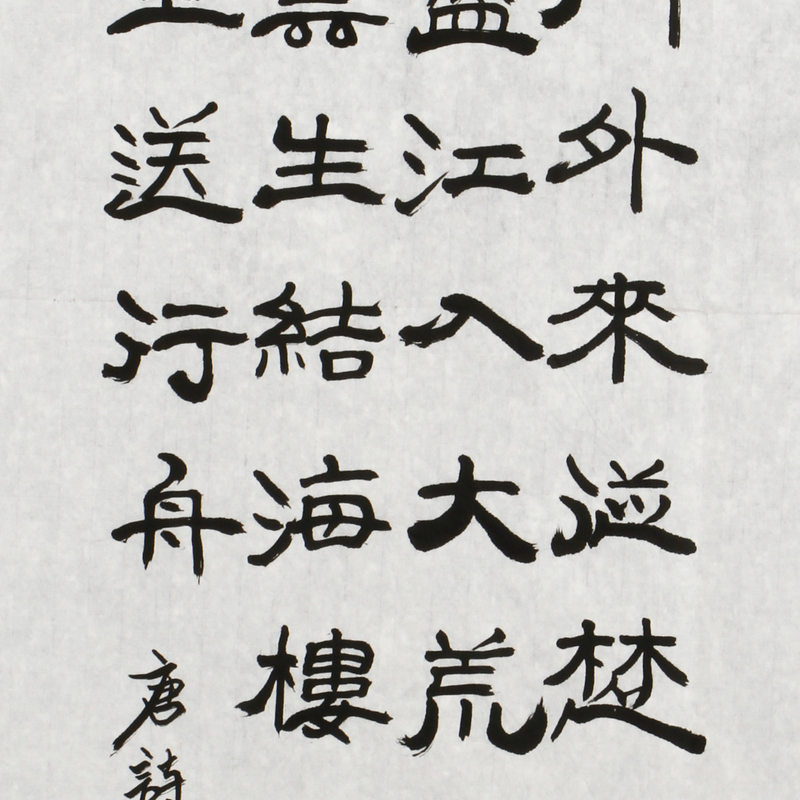 外來從楚
江入大荒
生結海樓
送行舟
唐詩